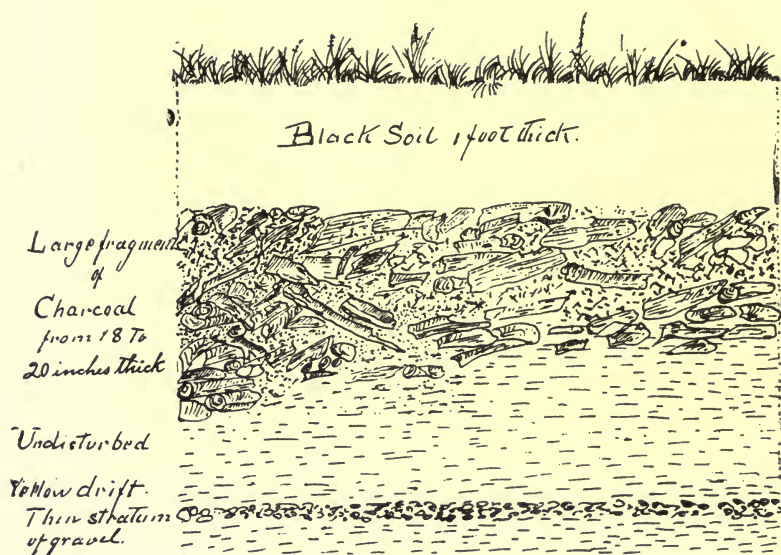 Black Soil 1 foot thick.
Large fragment
of
Charcoal
from 18 To
20 inches thick
Undisturbed
Yellow drift.
Thin stratum
of gravel.